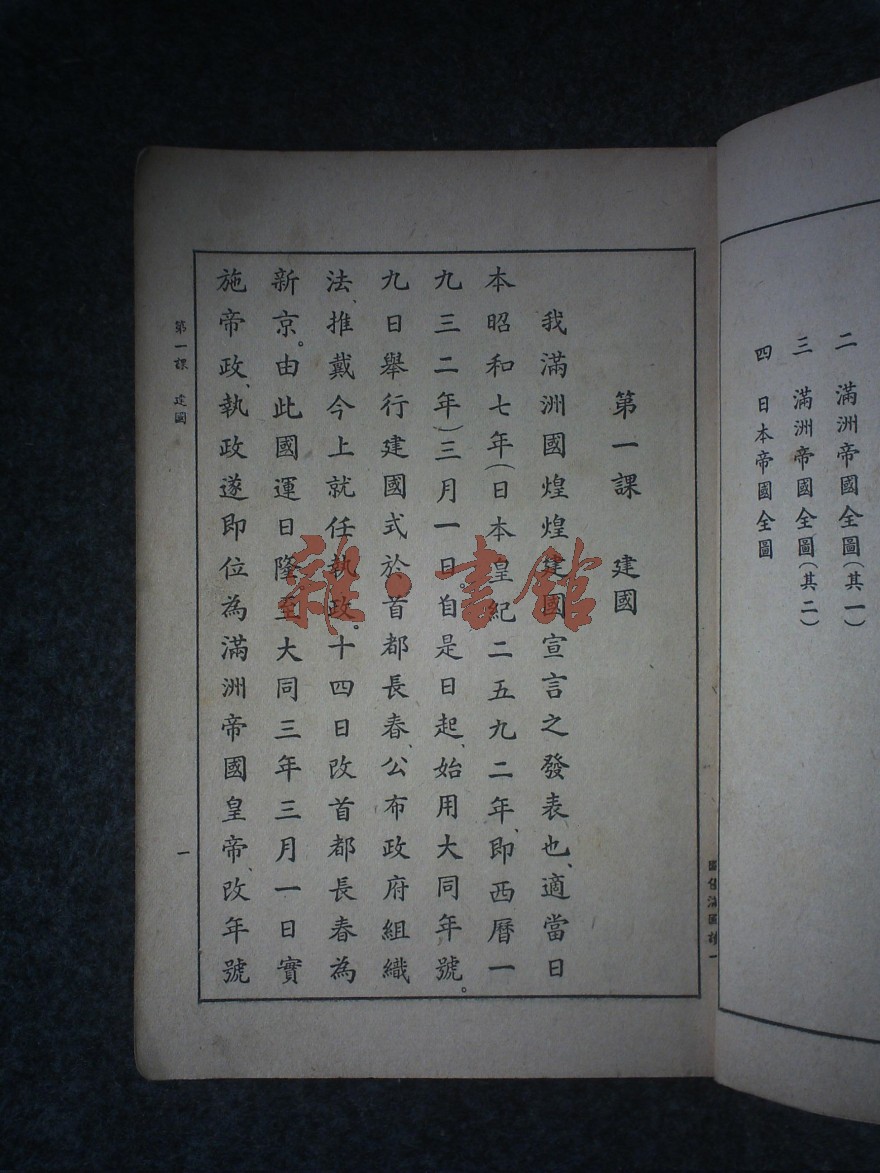 二　滿洲帝國全圖(其一)
三　滿洲帝國全圖(其二)
四　日本帝國全圖
第一課　建國
我滿洲國煌煌建國宣言之發表也、適當日
本昭和七年(日本皇紀二五九二年、即西曆一
九三二年)三月一日。自是日起、始用大同年號。
九日舉行建國式於首都長春、公布政府組織
法、推戴今上就任執政。十四日改首都長春為
新京。由此國運日隆、至大同三年三月一日實
施帝政、執政遂即位為滿洲帝國皇帝、改年號
第一課　建國
一
雜·書館